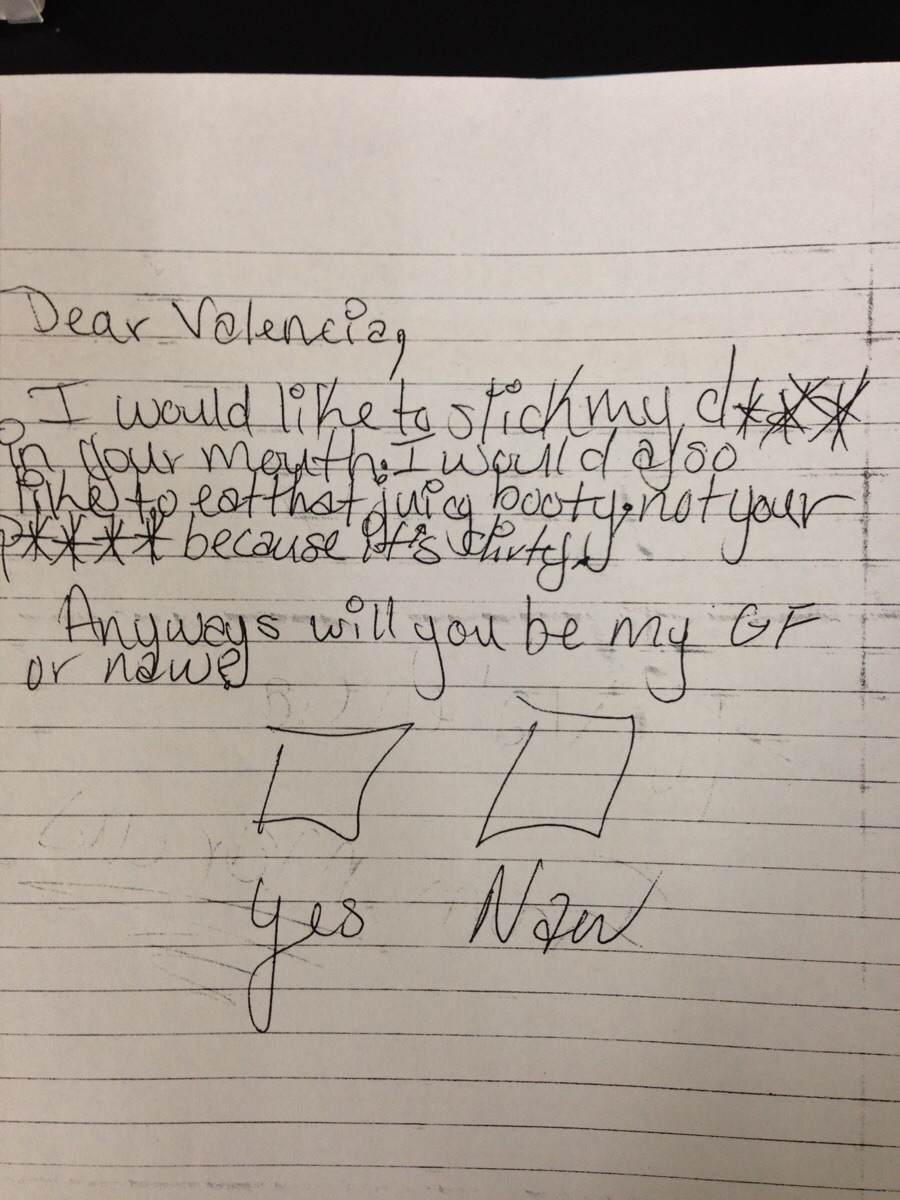 Dear Valencia,
I would like to stick my d***
in your mouth. I would also
like to eat that juicy booty, not your
p**** because it's dirty.
Anyways will you be my GF
or naw?
Yes Naw